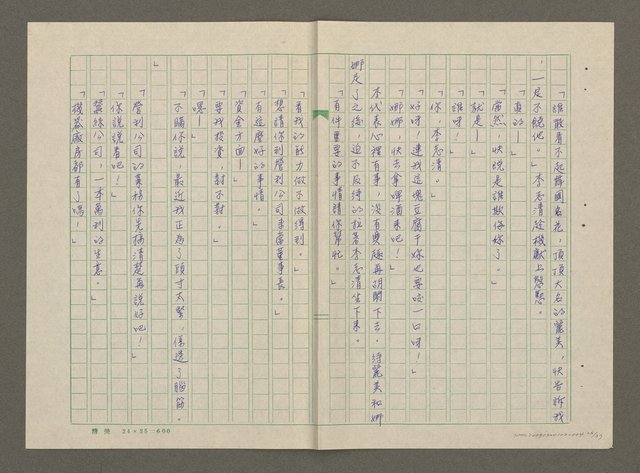 「誰敢看不起舞國名花，頂頂大名的麗美，快告訴我
，一定不饒他。」李志清趁機獻上慇懃。
「真的！」
「當然，快說是誰欺侮妳了。」
「就是！」
「誰呀！」
「你，李志清。」
「好呀，連我這塊豆腐干妳也要咬一口呀！」
「娜娜，快去拿啤酒來吧！」
李代表心裡有事，沒有興趣再胡鬧下去，待麗美和娜
娜走了之後，迫不及待的拉著李志清坐下來。
「有件重要的事情請你幫忙。」
「看我的能力做不做得到。」
「想請你到營利公司當董事長。」
「有這麼好的事情。」
「資金方面！」
「要我投資，對不對。」
「嗯！」
「不瞞你說，最近我正為了頭寸太緊，傷透了腦筋。
」
「營利公司的業務你先搞清楚再說好吧！」
「你說說看吧！」
「製線公司，一本萬利的生意。」
「機器廠房都有了嗎！」
24×25=600